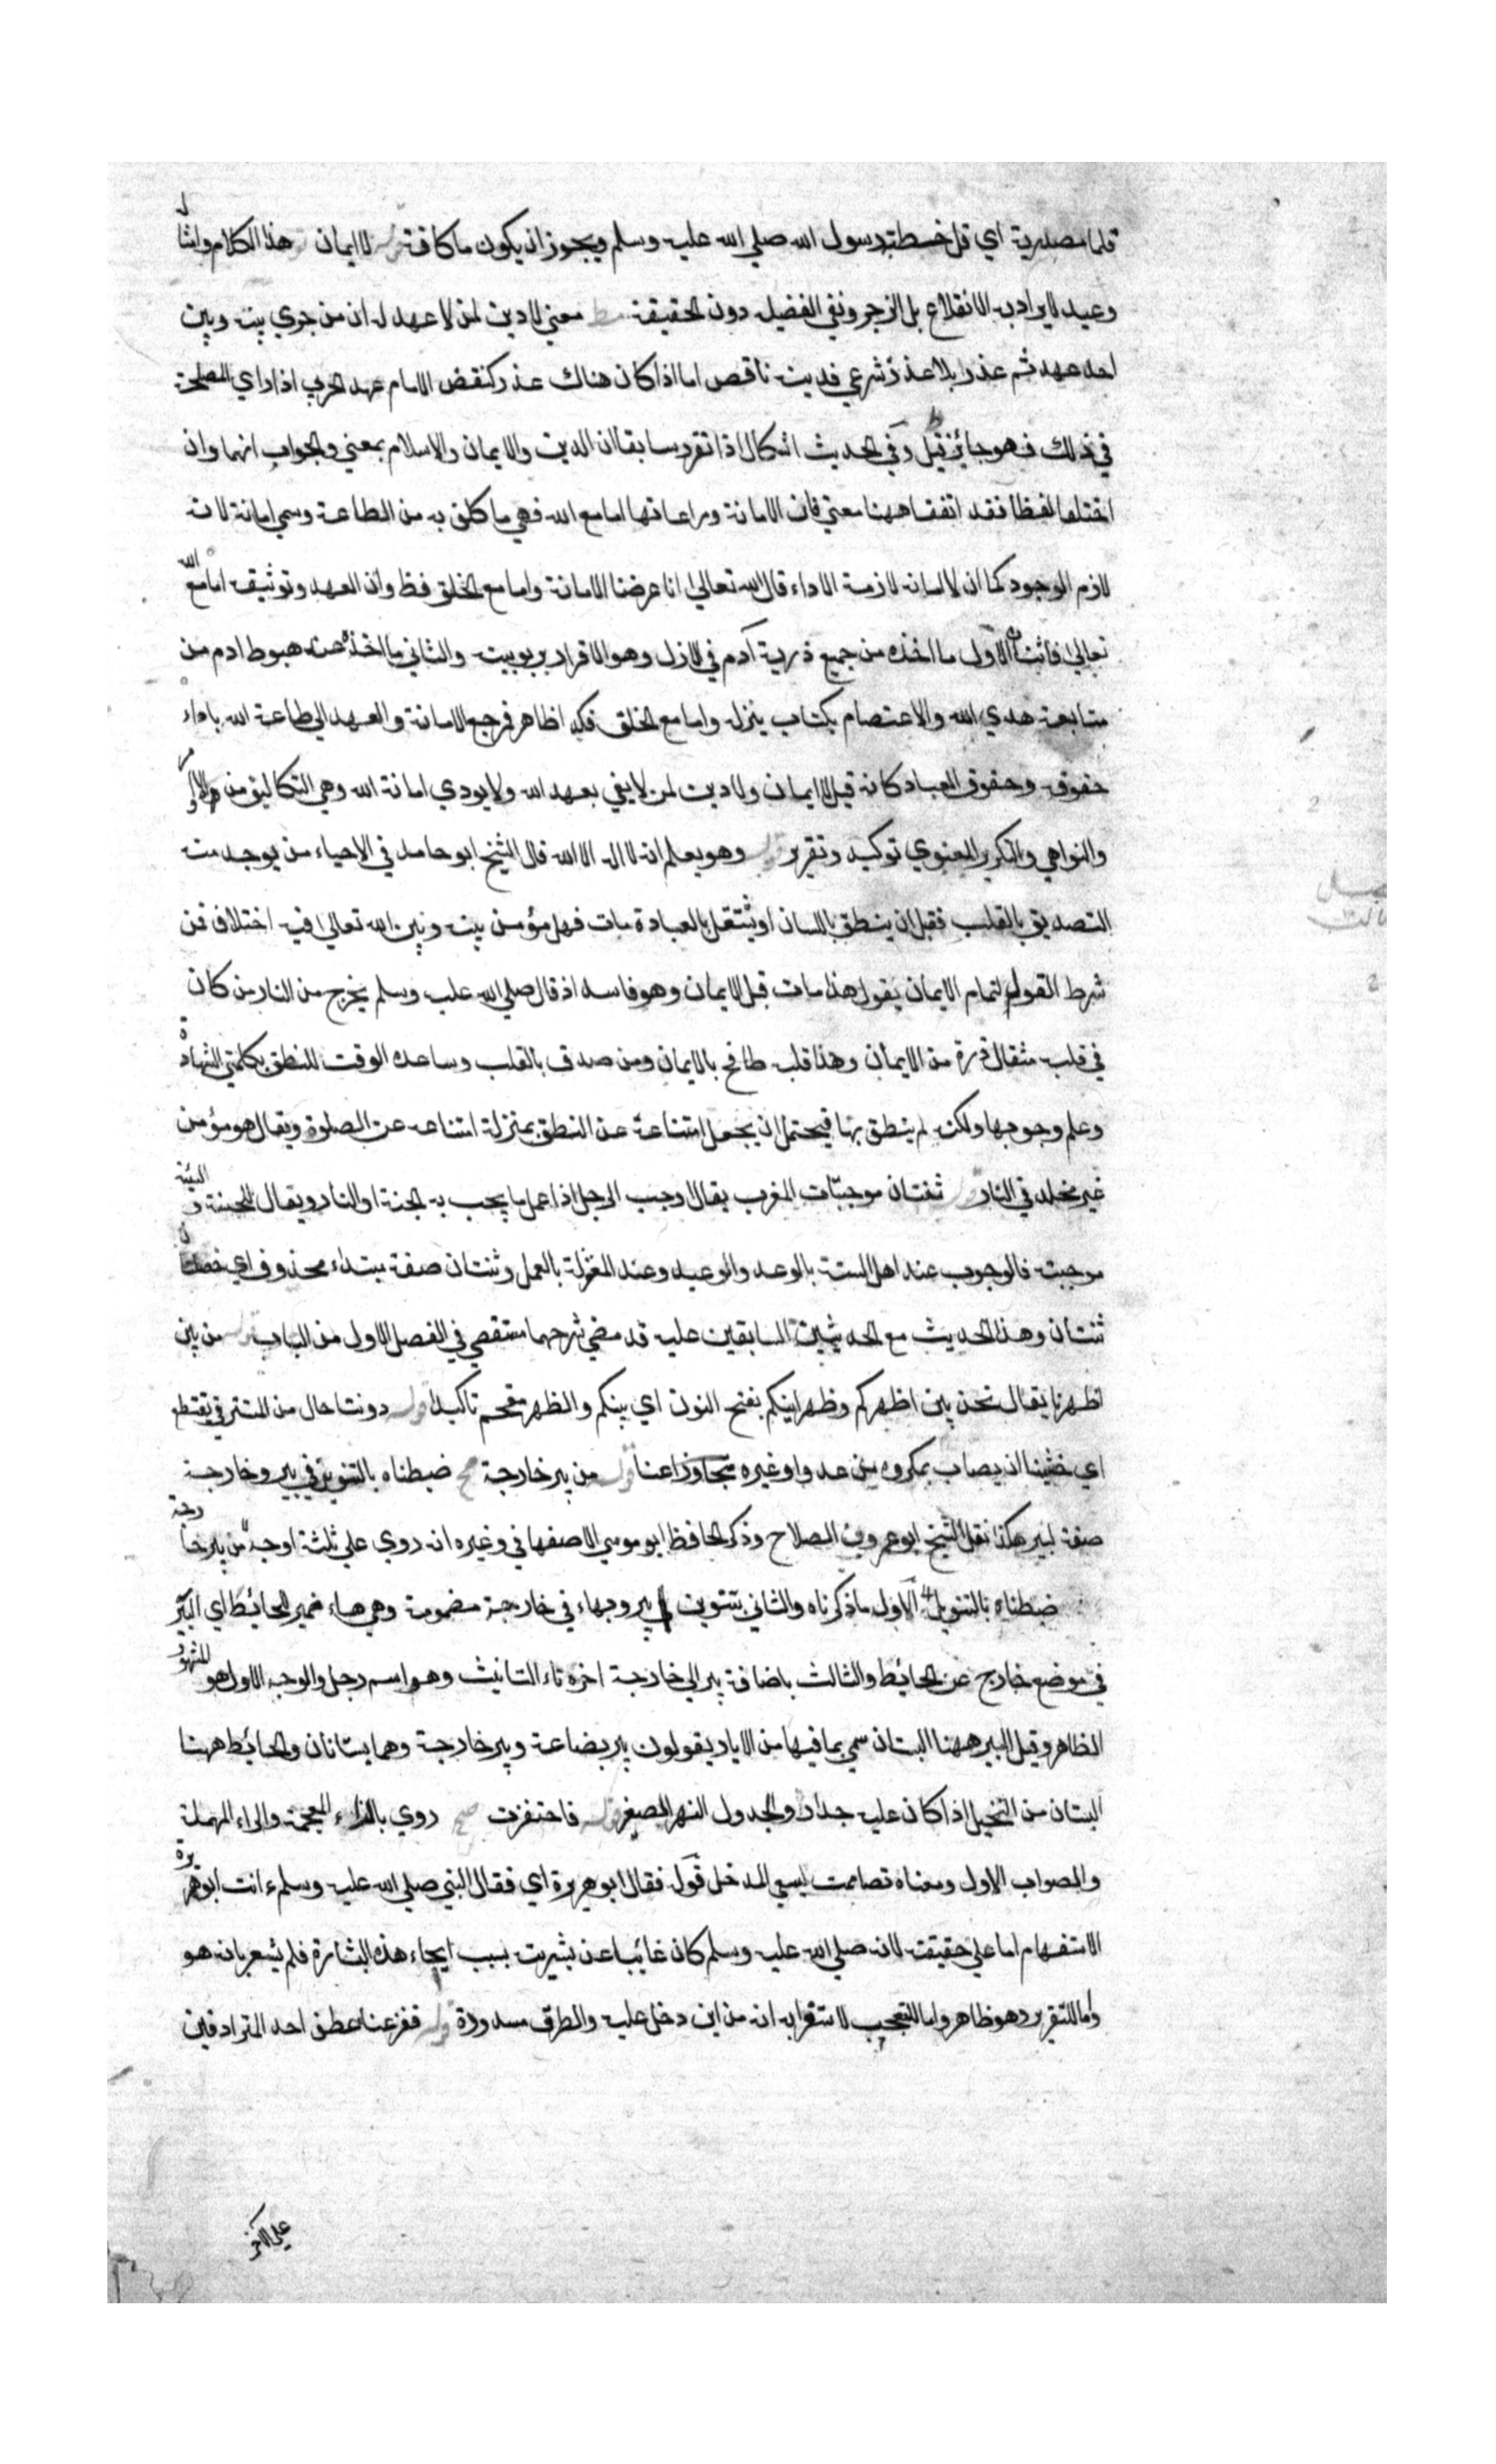 قلما مصدرية اي قل خطبة رسول الله صلي الله عليه وسلم ويجوز ان يكون ما كافة قوله لا ايمان هذا الكلام وامثال
وعيد لا يراد به الانقلاع بل الزجر ونفي الفضيلة دون الحقيقة مظ معني لا دين لمن لا عهد له ان من جري بينه وبين
احد عهد ثم غدر بلا عذر شرعي فدينه ناقص اما اذا كان هناك عذر كنقض الامام عهد الحربي اذا راي المصلحة
في ذلك فهو جائز قيل وفي الحديث اشكال اذا تقرر سابقا ان الدين والايمان والاسلام بمعني والجواب انهما وان
اختلفا لفظا فقد اتفقا ههنا معني فان الامانة ومراعاتها اما مع الله فهي ما كلف به من الطاعة وسمي امانة لانه
لازم الوجود كما ان الامانة لازمة الاداء قال الله تعالي انا عرضنا الامانة واما مع الخلق فظ وان العهد وتوثيقه اما مع الله
تعالي فاثنان الاول ما اخذه من جميع ذرية آدم في الازل وهو الاقرار بربوبيته والثاني ما اخذه عند هبوط ادم من
متابعة هدي الله والاعتصام بكتاب ينزله واما مع الخلق فظاهر فمرجع الامانة والعهد الي طاعة الله باداء
حقوقه وحقوق العباد كانه قيل لا ايمان ولا دين لمن لا يفي بعهد الله ولا يودي امانة الله وهي التكاليف من الاوامر
والنواهي والتكرير المعنوي توكيد وتقرير قوله وهو يعلم انه لا اله الا الله قال الشيخ ابو حامد في الاحياء من يوجد منه
التصديق بالقلب فقبل ان ينطق باللسان او يشتغل بالعبادة مات فهل مؤمن بينه وبين الله تعالي فيه اختلاف فمن
شرط القول لتمام الايمان يقول هذا مات قبل الايمان وهو فاسد اذ قال صلي الله عليه وسلم يخرج من النار من كان
في قلبه مثقال ذرة من الايمان وهذا قلبه طافح بالايمان ومن صدق بالقلب وساعده الوقت للنطق بكلمتي الشهادة
وعلم وجوبها ولكنه لم ينطق بها فيحتمل ان يجعل امتناعه عن النطق بمنزلة امتناعه عن الصلوة ويقال هو مؤمن
غير مخلد في النار قوله ثنتان موجبتان المغرب يقال اوجب الرجل اذا عمل ما يجب به الجنة او النار ويقال للحسنة و السيئة
موجبة فالوجوب عند اهل السنة بالوعد والوعيد وعند المعتزلة بالعمل وثنتان صفة مبتداء محذوف اي خصلتان
ثنتان وهذا الحديث مع الحديثين السابقين عليه قد مضي شرحهما مستقصي في الفصل الاول من الباب قوله من بين
اظهرنا يقال نحن بين اظهركم وظهرانيكم بفتح النون اي بينكم والظهر مقحم تاكيدا قوله دوننا حال من المستتر في تقتطع
اي خشينا ان يصاب بمكروه من عدو او غيره متجاوزا عنا قوله من بير خارجة مح ضبطناه بالتنوين في بير وخارجة
صفة لبير هكذا نقل الشيخ ابو عمرو بن الصلاح وذكر الحافظ ابو موسي الاصفهاني وغيره انه روي علي ثلثة اوجه من بير خارجة
ضبطناه بالتنوين الاول ما ذكرناه والثاني بتنوين بير وبهاء في خارجة مضمومة وهي هاء ضمير الحائط اي البير
في موضع خارج عن الحائط والثالث باضافة بير الي خارجة اخره تاء التانيث وهو اسم رجل والوجه الاول هو المشهور
الظاهر وقيل البير ههنا البستان سمي بما فيها من الابار يقولون بير بضاعة وبير خارجة وهما بستانان والحائط ههنا
البستان من النخيل اذا كان عليه جدار والجدول النهر الصغير قوله فاحتفزت مح روي بالزاء المعجمة والراء المهملة
والصواب الاول ومعناه تضاممت ليسعني المدخل قوله فقال ابو هريرة اي فقال النبي صلي الله عليه وسلم ءانت ابو هريرة
الاستفهام اما علي حقيقته لانه صلي الله عليه وسلم كان غائبا عن بشريته بسبب ايحاء هذه البشارة فلم يشعر بانه هو
واما للتقرير وهو ظاهر واما للتعجب لاستغرابه انه من اين دخل عليه والطرق مسدودة قوله ففزعنا عطف احد المترادفين
علي الاخر